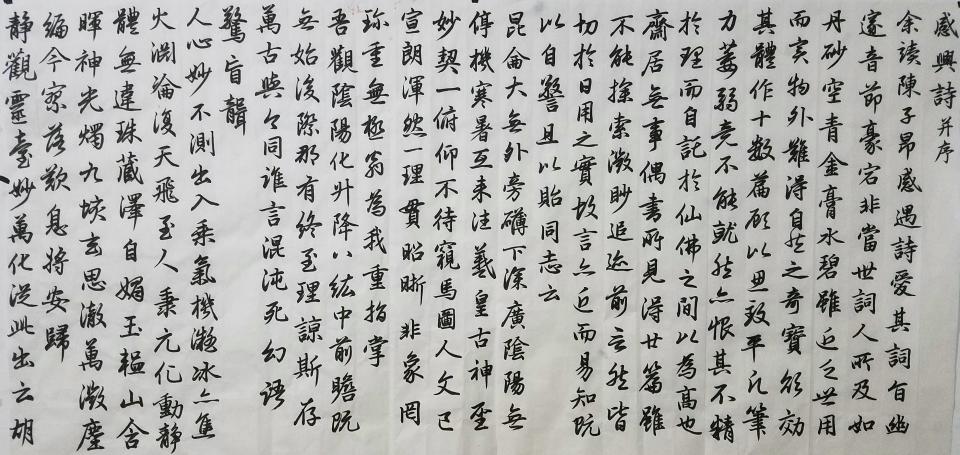 感興詩 并序
余读陳子昂感遇詩愛其詞旨幽
邃音節豪宕非當世詞人所及如
丹砂空青金膏水碧雖近乏世用
而实物外難得自然之奇寶欲效
其體作十數篇顧以思致平凡筆
力萎弱竟不能就然亦恨其不精
於理而自託於仙佛之間以為高也
齋居無事偶書所見得廿篇雖
不能探索微眇追迹前言然皆
切於日用之實故言亦近而易知既
以自警且以貽同志云
昆侖大無外旁礴下深廣陰陽無
停機寒暑互来往羲皇古神圣
妙契一俯仰不待窺馬圖人文已
宣朗渾然一理貫昭晰非象罔
珎重無極翁為我重指掌
吾觀陰陽化升降八紘中前瞻既
無始後際那有终至理諒斯存
萬古與今同誰言混沌死幻語
驚盲聾
人心妙不測出入乘氣機凝冰亦焦
火淵淪復天飛至人秉元化動静
體無違珠藏澤自媚玉韞山含
暉神光燭九垓玄思澈萬微塵
編今寥落歎息將安歸
静觀靈臺妙萬化從此出云胡